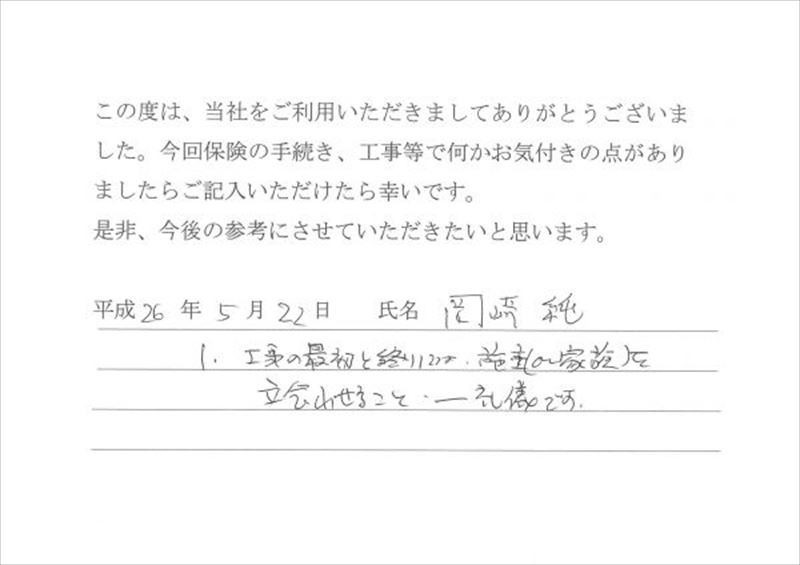 この度は、当社をご利用いただきましてありがとうございま
した。今回保険の手続き、工事等で何かお気付きの点があり
ましたらご記入いただけたら幸いです。
是非、今後の参考にさせていただきたいと思います。
平成26年5月22日 氏名 岡崎 純
1. 工事の最初と終りには、施主(or家族)を
立会わせること・ー礼儀です.